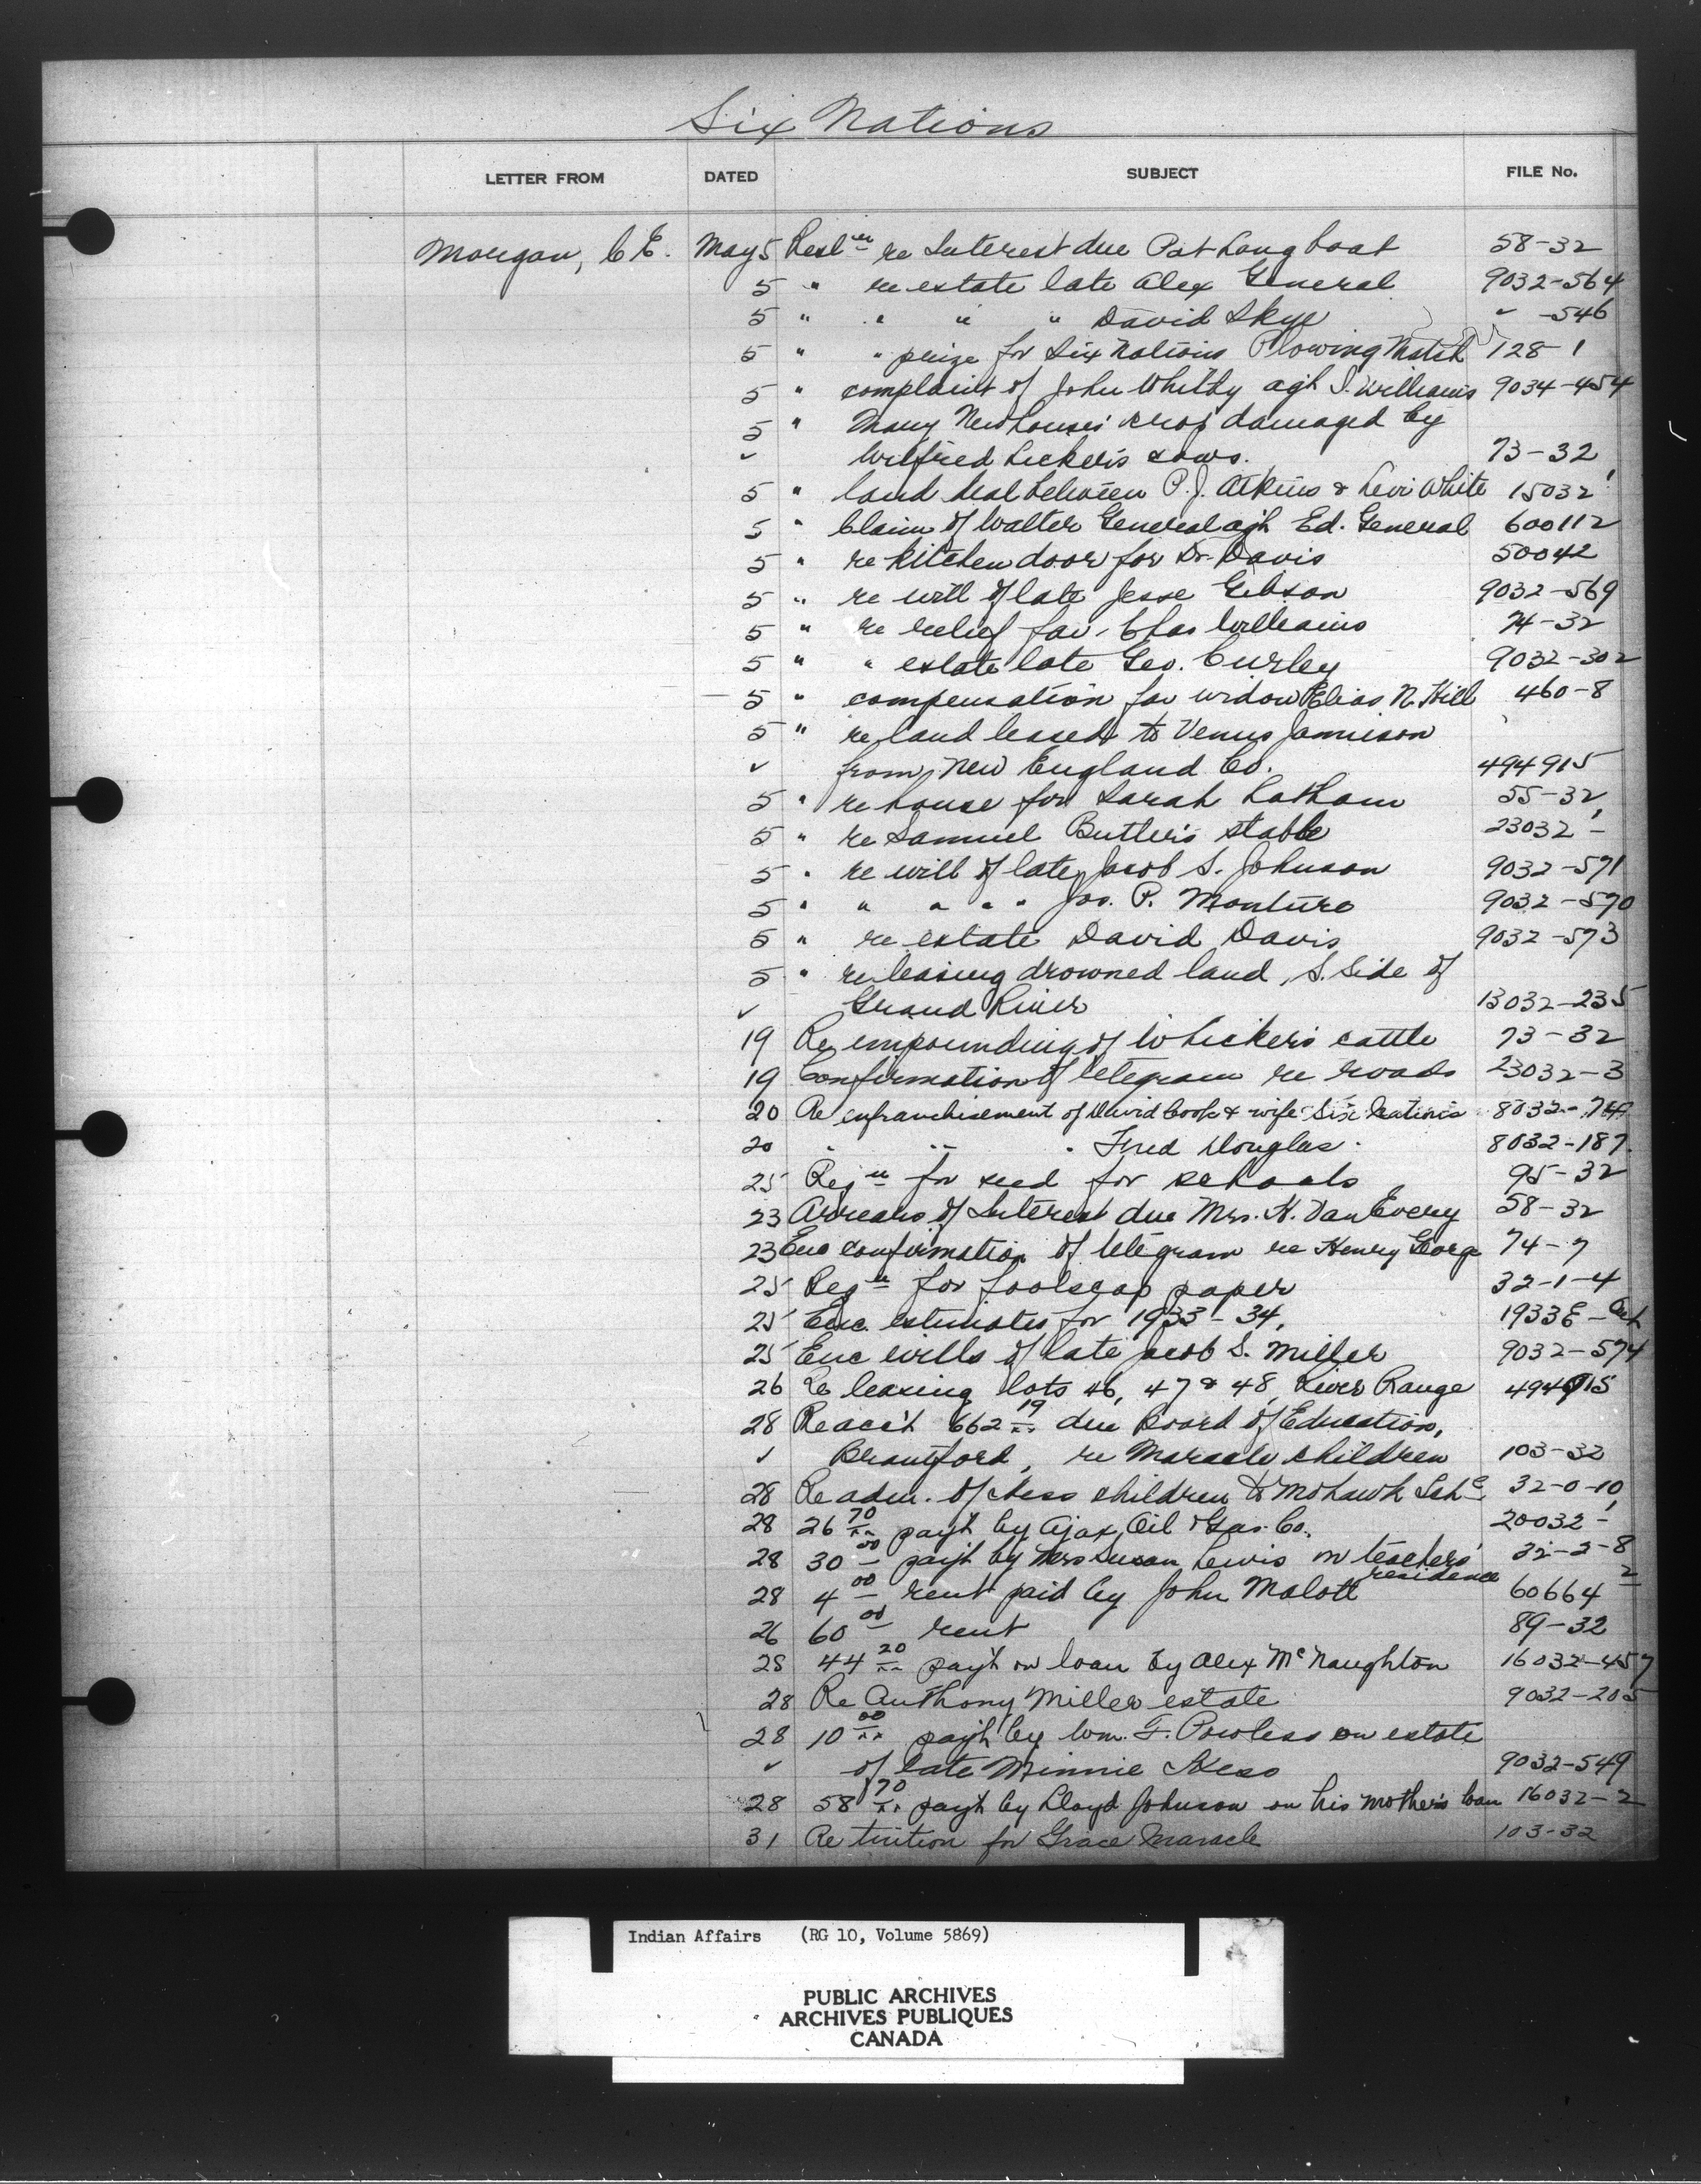 Six Nations
LETTER FROM DATED SUBJECT FILE No.
Morgan, C.E. May 5 Resl'n re Interest due Pat Longboat 58-32
5 " re estate late Alex General 9032-564
5 " " " " David Skye " -546
5 " " prize for Six Nations Plowing Match 128-1
5 " complaint of John Whitby agst S. Williams 9034-454
5 " Mary Newhouse's crop damaged by
✓ Wilfred Licker's cows. 73-32
5 " land deal between P.J. Atkins & Levi White 15032
5 " Claim of Walter General agst Ed. General 600112
5 " re kitchen door for Dr. Davis 50042
5 " re will of late Jesse Gibson 9032-569
5 " re relief for Chas Williams 74-32
5 " " estate late Geo. Curley 9032-302
5 " compensation for widow Elias N. Hill 460-8
5 " re land leased to Venus Jamieson
✓ from New England Co. 494915
5 " re house for Sarah Latham 55-32
5 " re Samuel Butler's stable 23032-
5 " re will of late Jacob S. Johnson 9032-571
5 " " " " " Jos. P. Monture 9032-570
5 " re estate David Davis 9032-573
5 " re leasing drowned land, S. Side of
✓ Grand River 13032-235
19 Re impounding of W Licker's cattle 73-32
19 Confirmation of telegram re roads 23032-3
20 Re enfranchisement of David Cook & wife Six Nations 8032-
20 " " " Fred Douglas. 8032-187
25 Reqn for seed for schools 95-32
23 Arrears of Interest due Mrs. H. VanEvery 58-32
23 Enc confirmation of telegram re Henry George 74-7
25 Reqn for foolscap paper 32-1-4
25 Enc. estimates for 1933-34. 1933E-
25 Enc wills of late Jacob S. Miller 9032-574
26 Re leasing lots 46, 47 & 48, River Range 494915
28 Re acc't 662 19 due Board of Education,
✓ Brantford, re Maracle children 103-32
28 Re adm. of Hess children to Mohawk Sch 32-0-10
28 26 70 pay't by Ajax Oil & Gas. Co. 20032-1
28 30 00 pay't by Mrs Susan Lewis on teachers' residence 32-2-8
28 4 00 rent paid by John Malott 60664-2
26 60 00 rent 89-32
28 44 20 pay't on loan by Alex McNaughton 16032-457
28 Re Anthony Miller estate 9032-205
28 10 00 pay't by Wm. F. Powless on estate
✓ of late Minnie Hess 9032-549
28 58 70 pay't by Lloyd Johnson on his mother's loan 16032-2
31 Re tuition for Grace Maracle 103-32
Indian Affairs (RG 10, Volume 5869)
PUBLIC ARCHIVES
ARCHIVES PUBLIQUES
CANADA